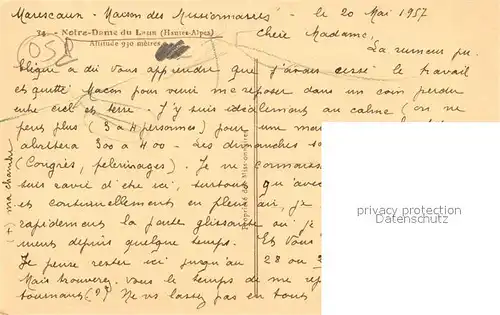 Marescaux - Maison des Missionnaires - le 20 Mai 1957
74. - Notre-Dame du Laus (Hautes-Alpes)
Altitude 930 mètres
OSP
Chère Madame,
La rumeur pu-
blique a dû vous apprendre que j'avais cessé le travail
et quitté Macon pour venir me reposer dans un coin perdu
entre ciel et terre. J'y suis idéalement au calme (on ne
peut plus (3 à 4 personnes) pour une
abritera 300 à 400 - Les dimanches
(Congrès, pélerinages). Je ne connais
suis ravi d'être ici, surtout qu'avec
et continuellement en plein air, je
rapidement la pente glissante où j'
depuis quelque temps. Et vous
Je pense rester ici jusqu'au 28 ou
Mais trouverez-vous le temps de me
(?) Ne vs lassez pas en tout
(+) ma chambre
Propriété des Missionnaires
privacy protection
www.oldthing.com